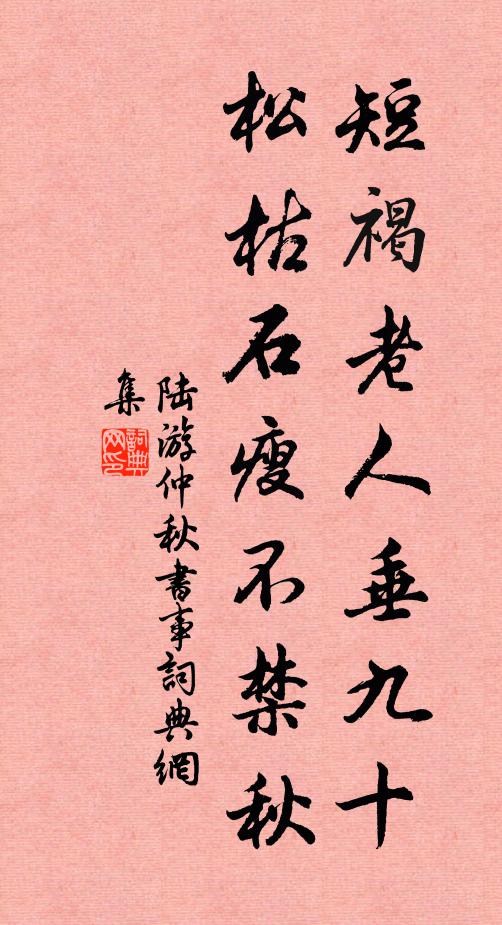 短褐老人垂九十
松枯石瘦不禁秋
陆游仲秋書事詞典網
集
詞典网印